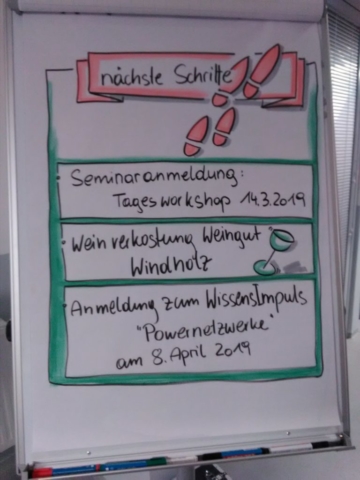 nächste Schritte
• Seminaranmeldung:
Tagesworkshop 14.3.2019
• Weinverkostung Weingut
Windholz
• Anmeldung zum WissensImpuls
"Powernetzwerke"
am 8. April 2019